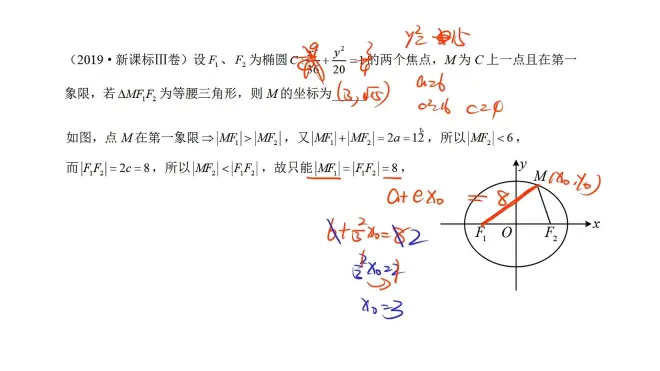 y²=15
(2019·新课标Ⅲ卷)设 F₁、F₂ 为椭圆 C: x²/36 + y²/20 = 1 的两个焦点,M 为 C 上一点且在第一
a=6
象限,若 ΔMF₁F₂ 为等腰三角形,则 M 的坐标为 (3,√15)
c²=16 c=4
如图,点 M 在第一象限 ⇒ |MF₁| > |MF₂|,又 |MF₁| + |MF₂| = 2a = 12,所以 |MF₂| < 6,
而 |F₁F₂| = 2c = 8,所以 |MF₂| < |F₁F₂|,故只能 |MF₁| = |F₁F₂| = 8,
y
M(x₀,y₀)
a+ex₀ = 8
F₁ O F₂ x
6+2/3x₀=8 2
2/3x₀=2
x₀=3